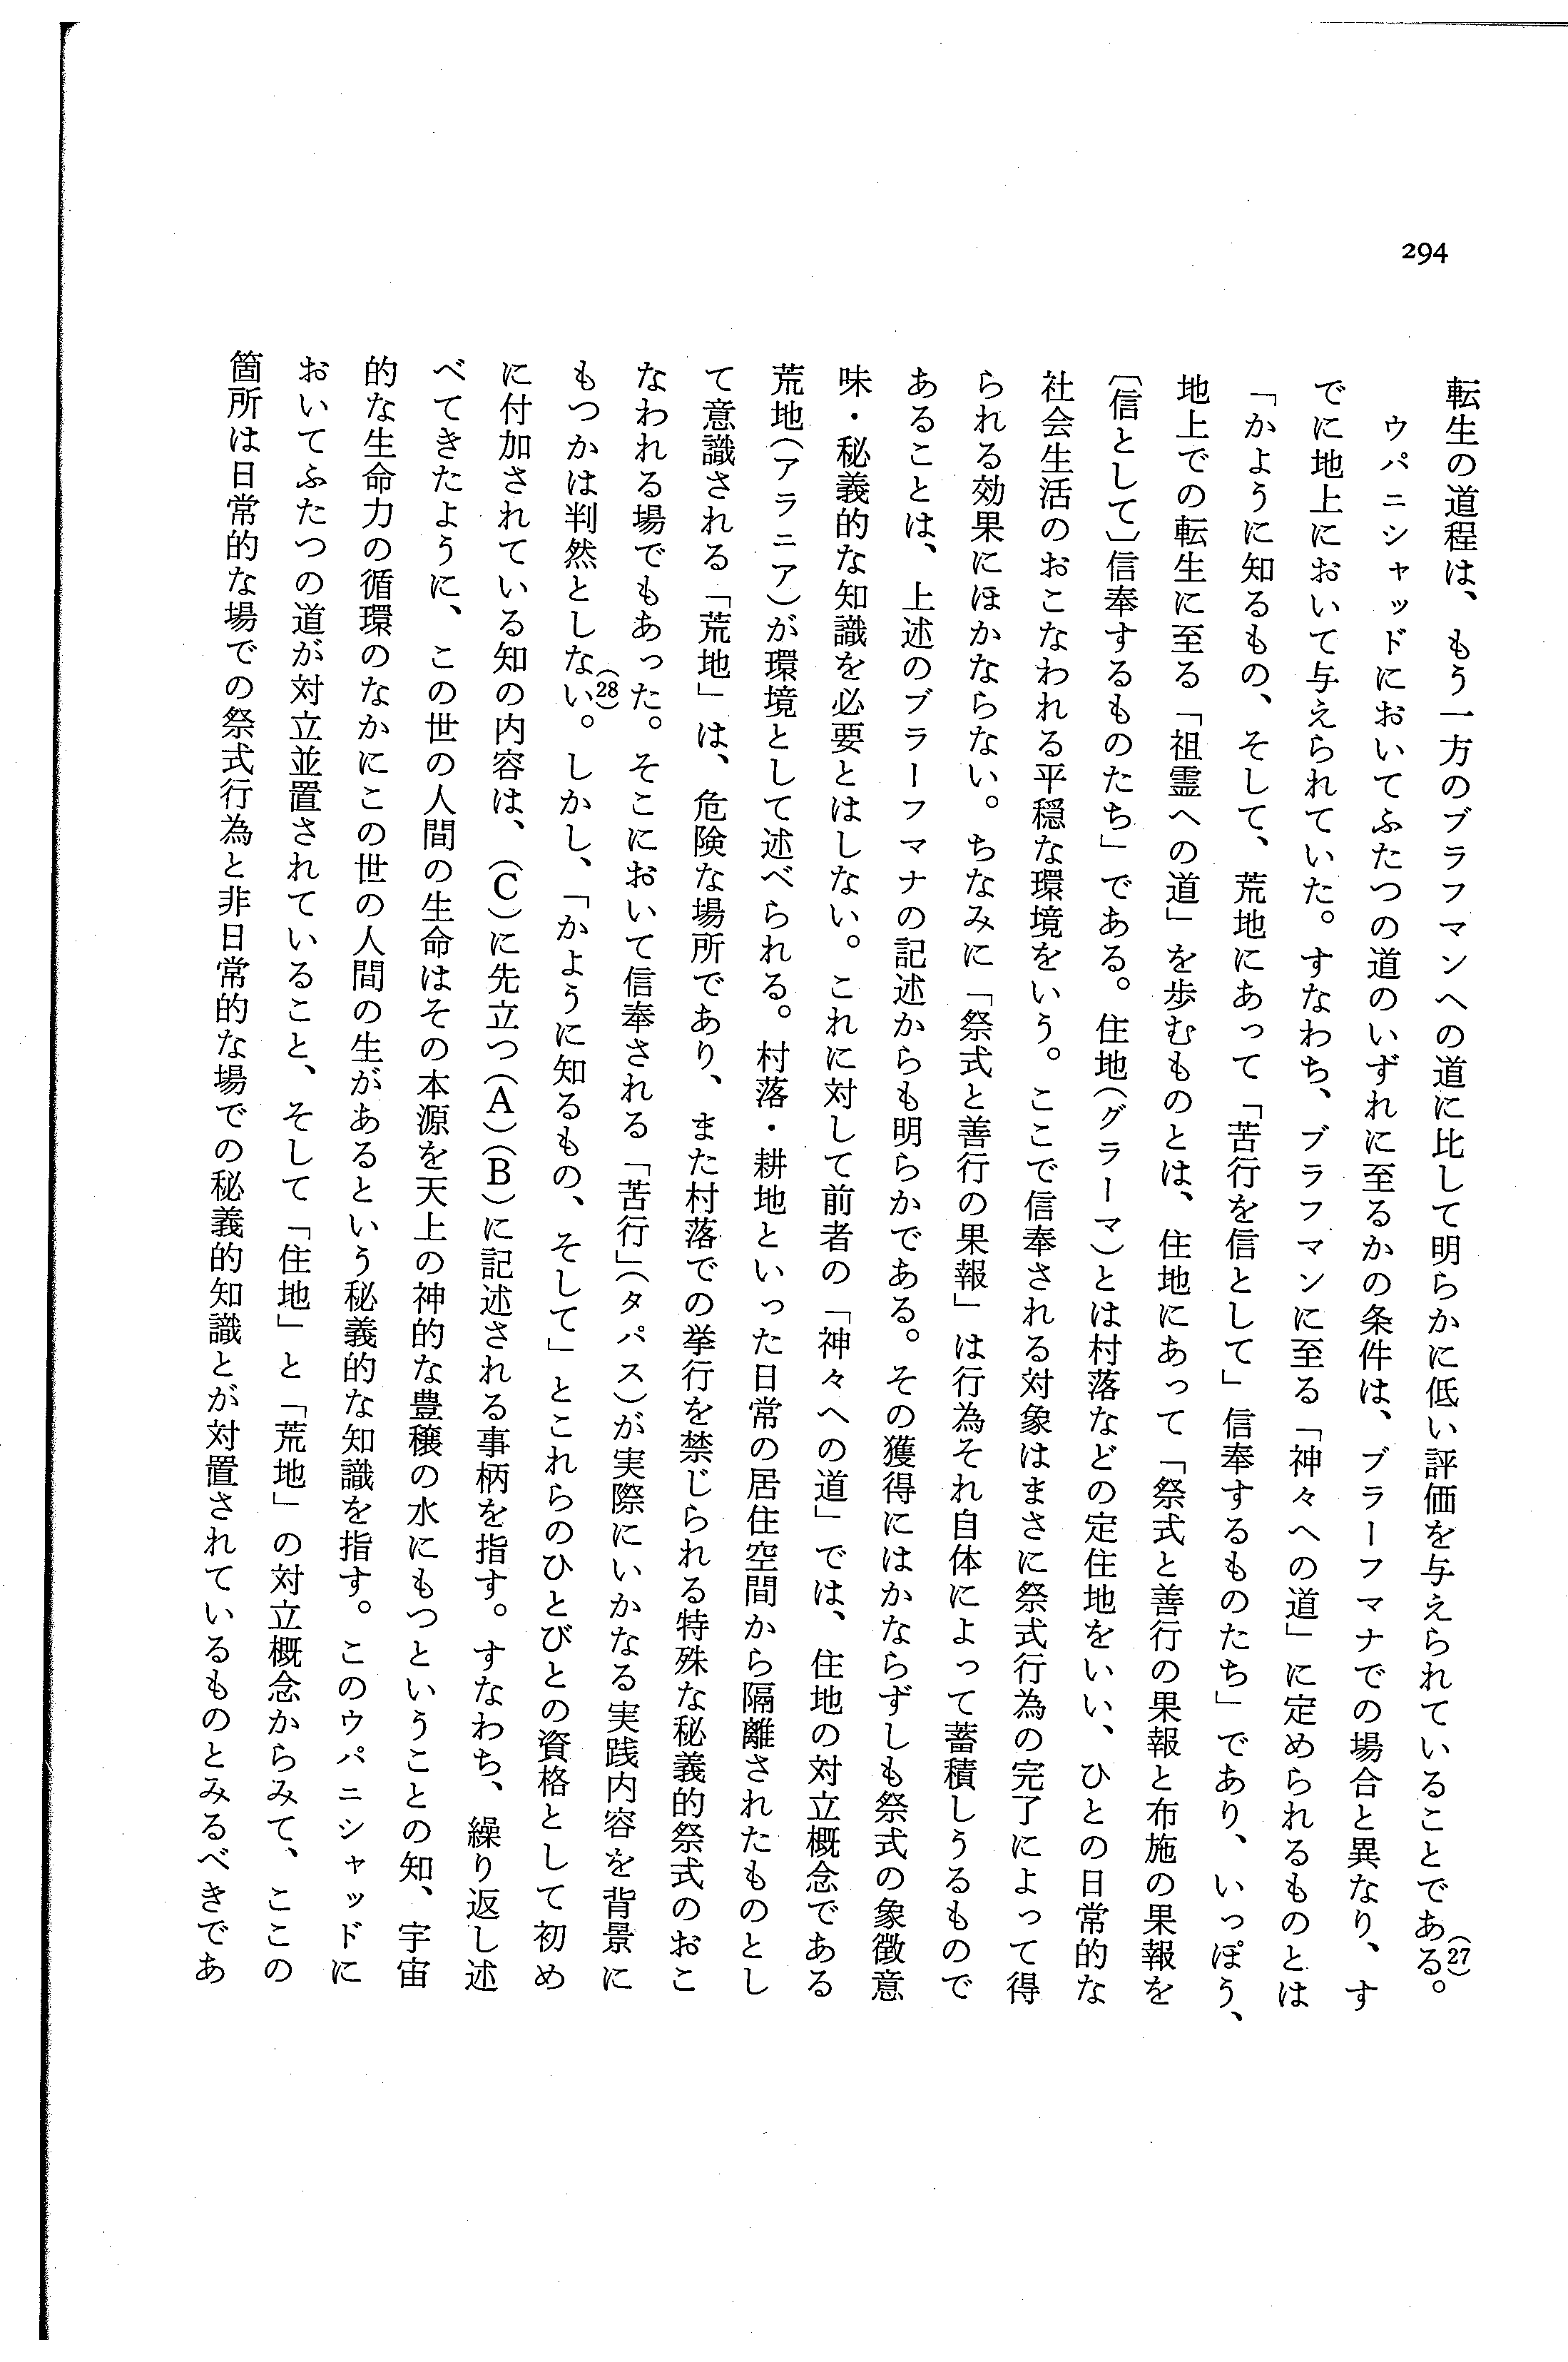 294
転生の道程は、もう一方のブラフマンへの道に比して明らかに低い評価を与えられていることである。(27)
ウパニシャッドにおいてふたつの道のいずれに至るかの条件は、ブラーフマナでの場合と異なり、す
でに地上において与えられていた。すなわち、ブラフマンに至る「神々への道」に定められるものとは
「かように知るもの、そして、荒地にあって「苦行を信として」信奉するものたち」であり、いっぽう、
地上での転生に至る「祖霊への道」を歩むものとは、住地にあって「祭式と善行の果報と布施の果報を
〔信として〕信奉するものたち」である。住地(グラーマ)とは村落などの定住地をいい、ひとの日常的な
社会生活のおこなわれる平穏な環境をいう。ここで信奉される対象はまさに祭式行為の完了によって得
られる効果にほかならない。ちなみに「祭式と善行の果報」は行為それ自体によって蓄積しうるもので
あることは、上述のブラーフマナの記述からも明らかである。その獲得にはかならずしも祭式の象徴意
味・秘義的な知識を必要とはしない。これに対して前者の「神々への道」では、住地の対立概念である
荒地(アラニア)が環境として述べられる。村落・耕地といった日常の居住空間から隔離されたものとし
て意識される「荒地」は、危険な場所であり、また村落での挙行を禁じられる特殊な秘義的祭式のおこ
なわれる場でもあった。そこにおいて信奉される「苦行」(タパス)が実際にいかなる実践内容を背景に
もつかは判然としない。(28)しかし、「かように知るもの、そして」とこれらのひとびとの資格として初め
に付加されている知の内容は、(C)に先立つ(A)(B)に記述される事柄を指す。すなわち、繰り返し述
べてきたように、この世の人間の生命はその本源を天上の神的な豊穣の水にもつということの知、宇宙
的な生命力の循環のなかにこの世の人間の生があるという秘義的な知識を指す。このウパニシャッドに
おいてふたつの道が対立並置されていること、そして「住地」と「荒地」の対立概念からみて、ここの
箇所は日常的な場での祭式行為と非日常的な場での秘義的知識とが対置されているものとみるべきであ